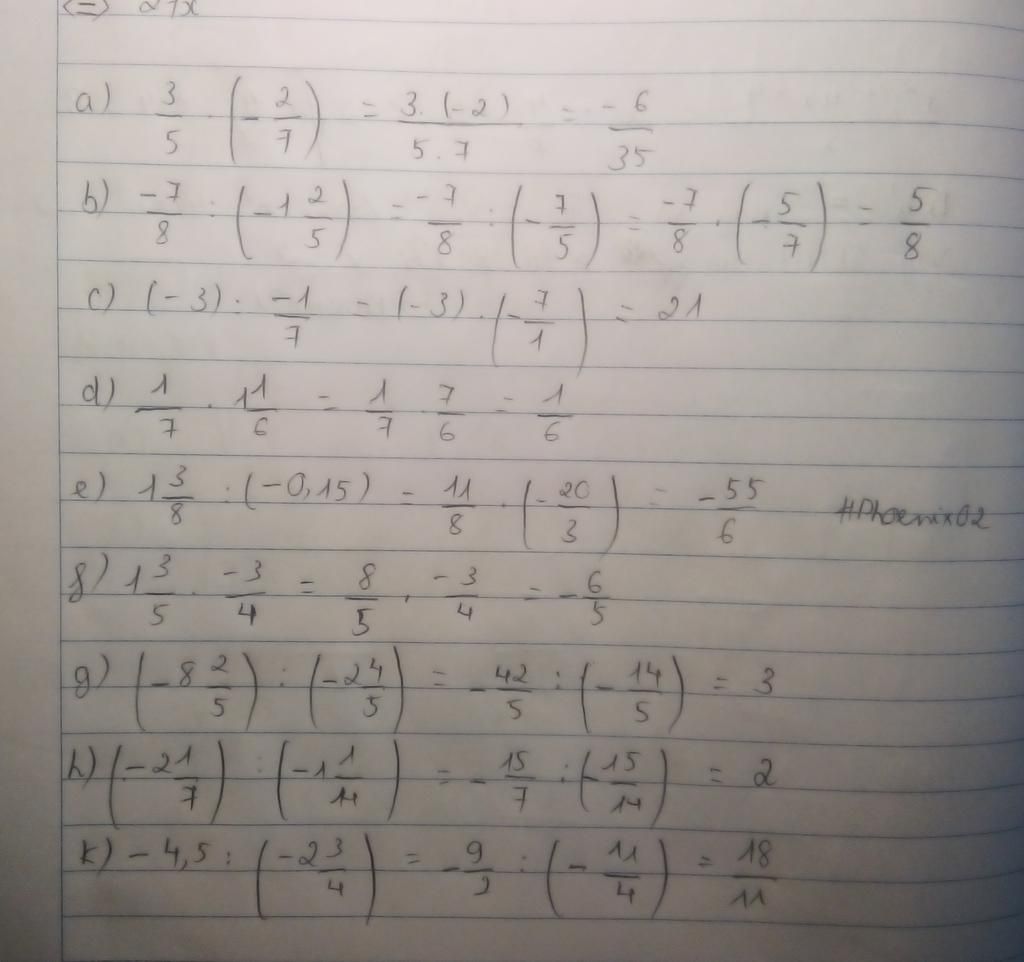 a) 3/5 . (-2/7) = 3.(-2)/5.7 = -6/35
b) -7/8 : (-1 2/5) = -7/8 : (-7/5) = -7/8 . (-5/7) = 5/8
c) (-3) : -1/7 = (-3) . (-7/1) = 21
d) 1/7 . 1 1/6 = 1/7 . 7/6 = 1/6
e) 1 3/8 : (-0,15) = 11/8 . (-20/3) = -55/6 #Phoenix02
f) 1 3/5 . -3/4 = 8/5 . -3/4 = -6/5
g) (-8 2/5) : (-2 4/5) = -42/5 : (-14/5) = 3
h) (-2 1/7) : (-1 1/14) = -15/7 : (-15/14) = 2
k) -4,5 : (-2 3/4) = -9/2 : (-11/4) = 18/11